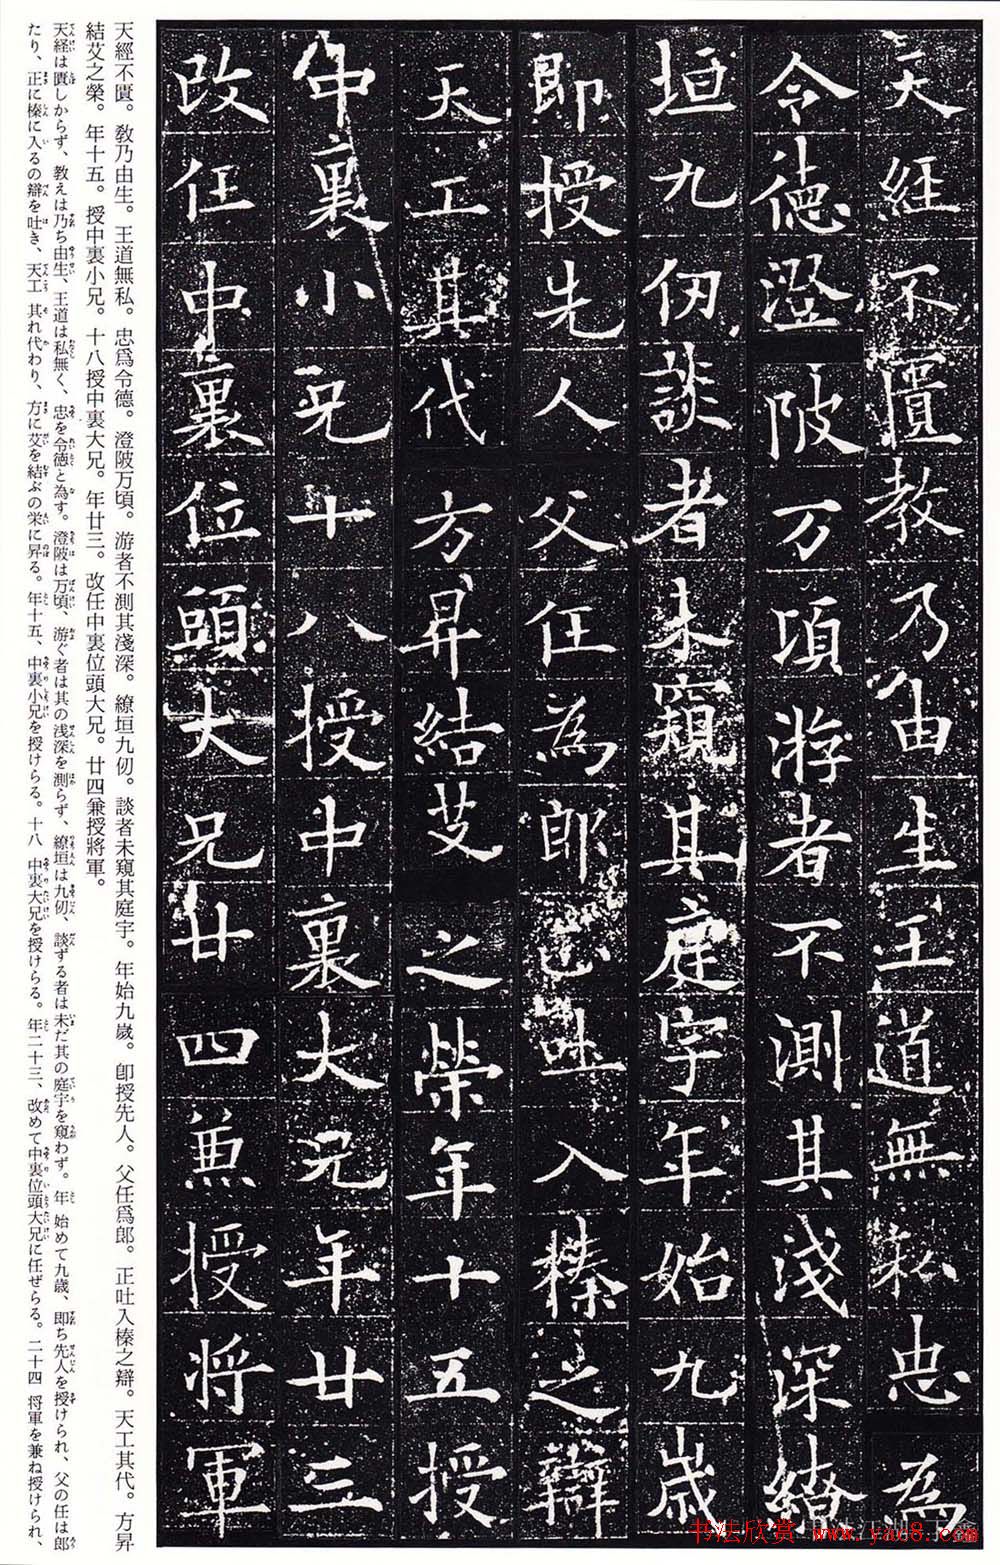 天經不匱教乃由生王道無私忠為
令德澄陂万頃游者不測其淺深繚
垣九仞談者未窺其庭宇年始九歲
即授先人父任為郎正吐入榛之辯
天工其代方昇結艾之榮年十五授
中裏小兄十八授中裏大兄年廿三
改任中裏位頭大兄廿四兼授將軍
天經不匱。教乃由生。王道無私。忠爲令德。澄陂万頃。游者不測其淺深。繚垣九仞。談者未窺其庭宇。年始九歲。卽授先人。父任爲郎。正吐入榛之辯。天工其代。方昇
結艾之榮。年十五。授中裏小兄。十八授中裏大兄。年廿三。改任中裏位頭大兄。廿四兼授將軍。
天経は匱しからず、教えは乃ち由生、王道は私無く、忠を令徳と為す。澄陂は万頃、游ぐ者は其の浅深を測らず、繚垣は九仞、談ずる者は未だ其の庭宇を窺わず。年 始めて九歳、即ち先人を授けられ、父の任は郎
たり、正に榛に入るの辯を吐き、天工 其れ代わり、方に艾を結ぶの栄に昇る。年十五、中裏小兄を授けらる。十八 中裏大兄を授けらる。年二十三、改めて中裏位頭大兄に任ぜらる。二十四 将軍を兼ね授けられ、
书法欣赏 www.yac8.com